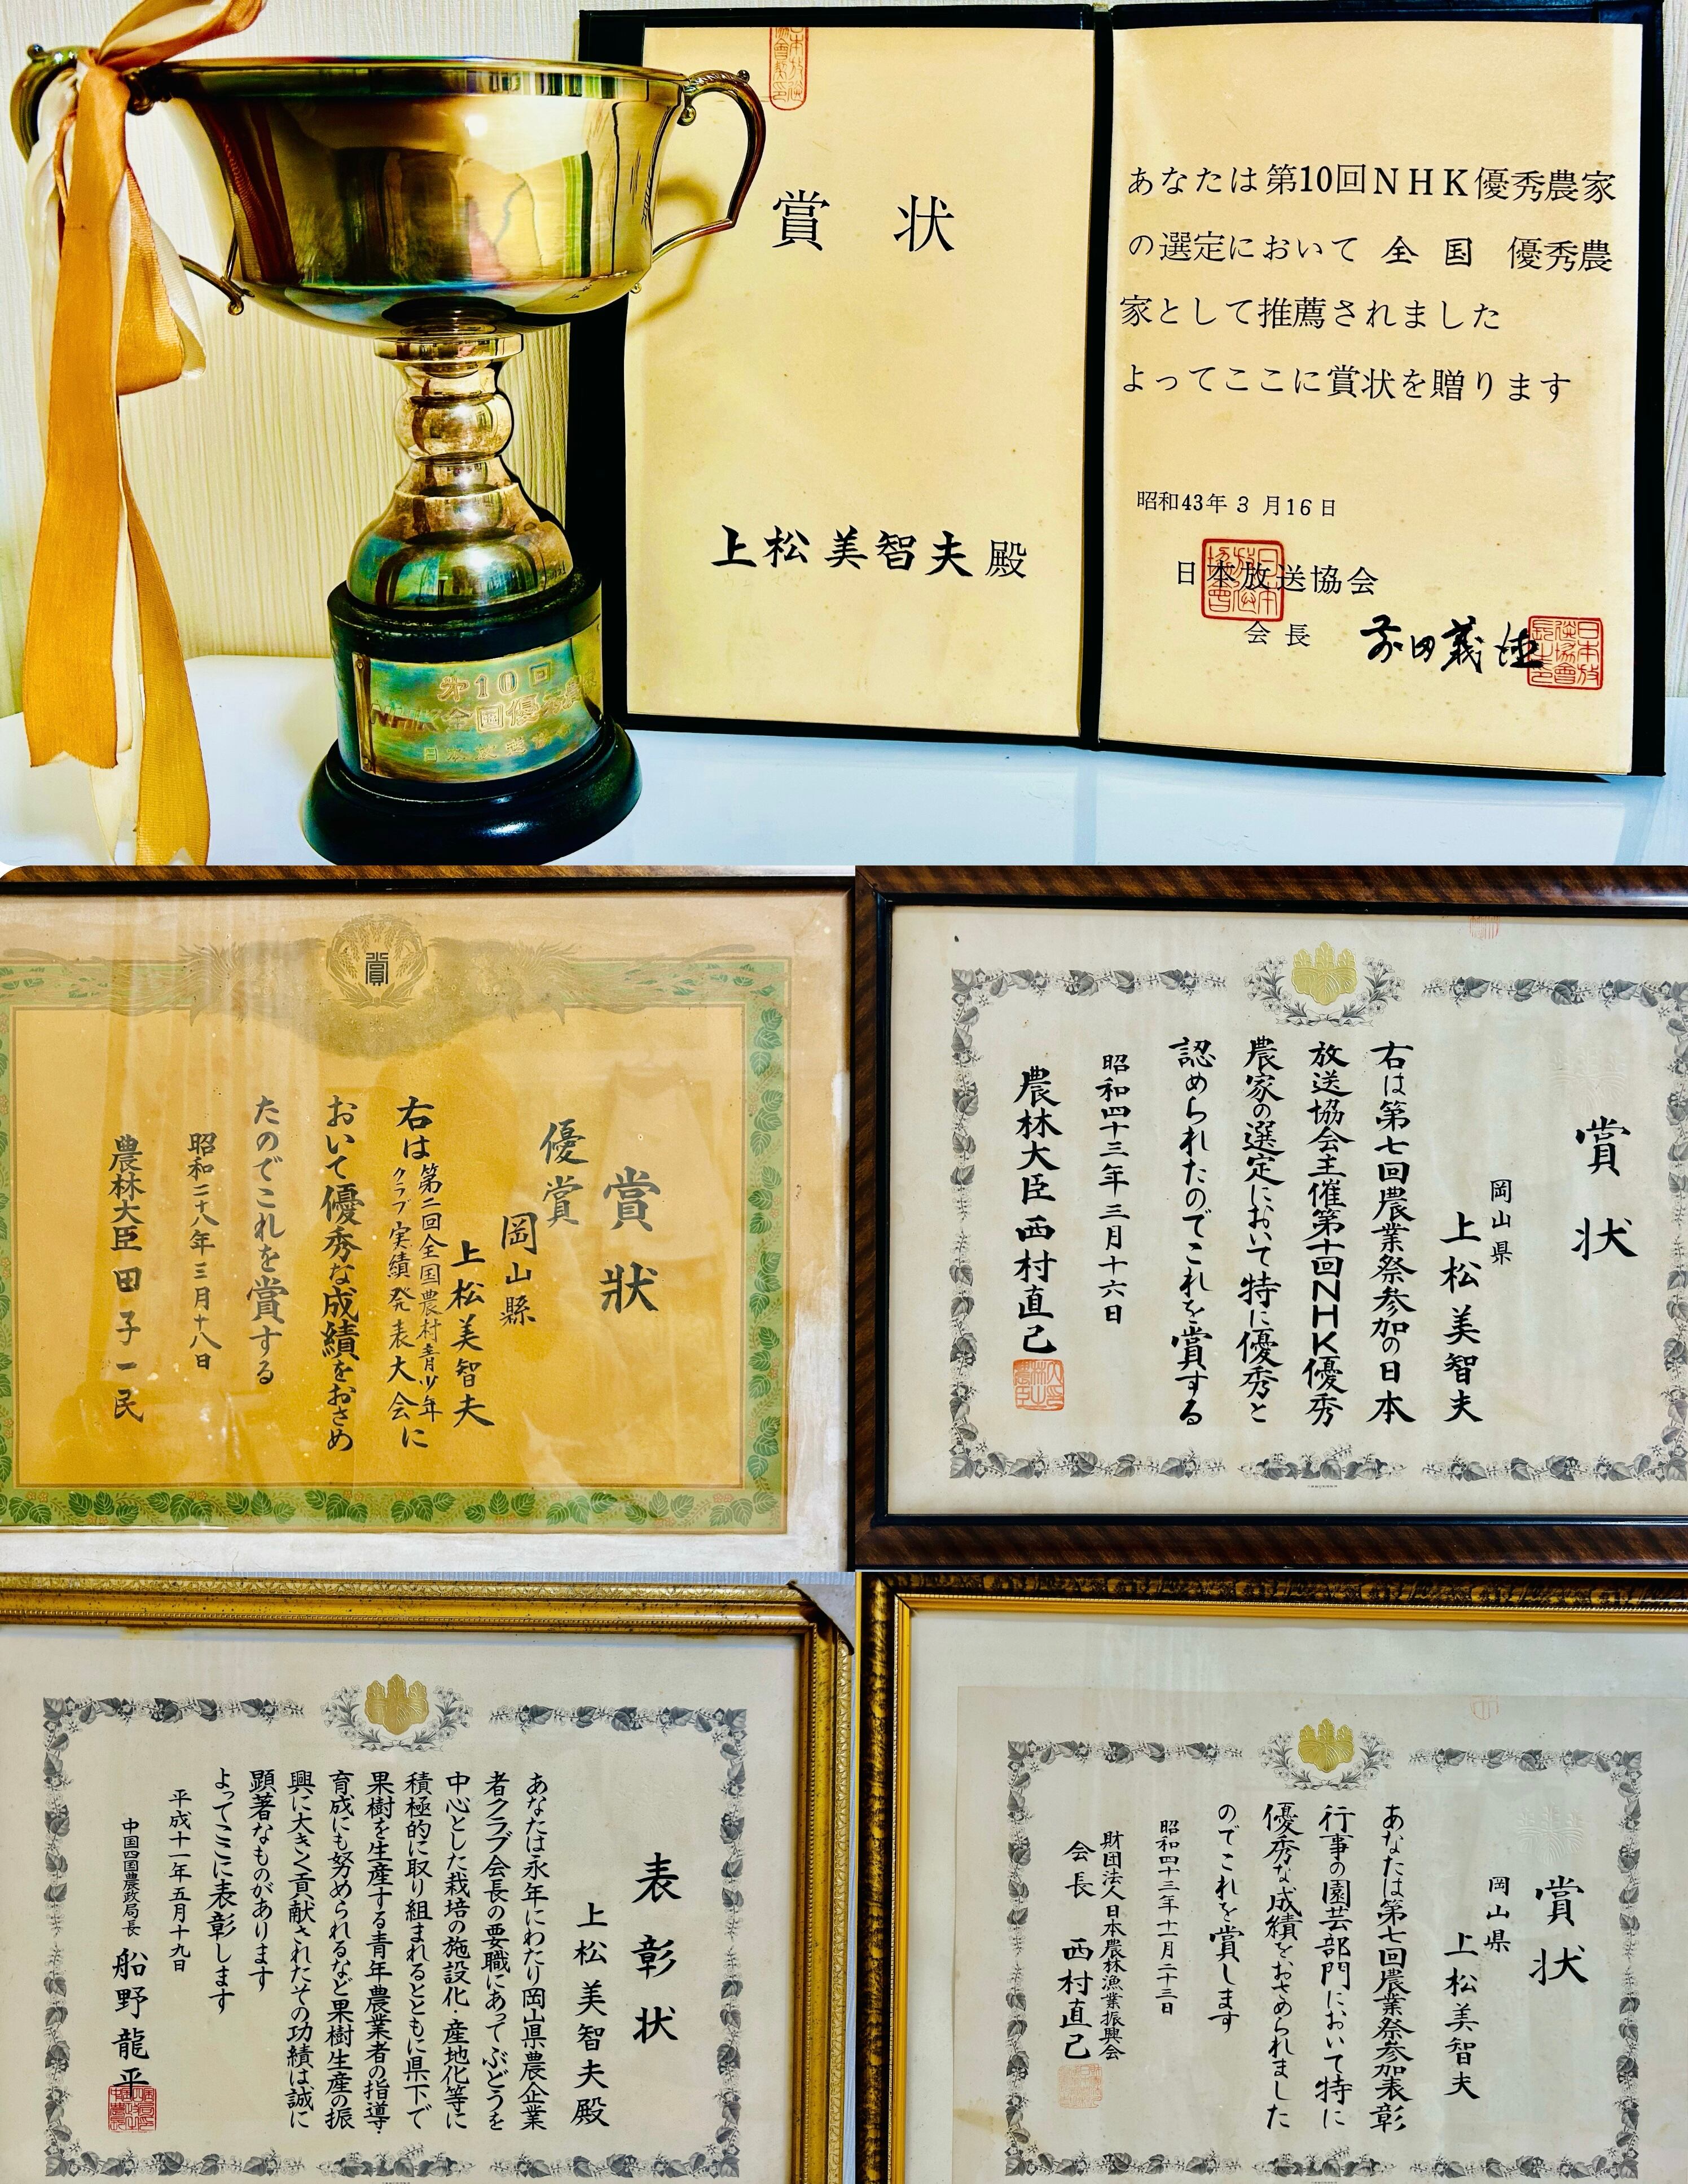 賞状
上松美智夫殿
あなたは第10回NHK優秀農家
の選定において 全国 優秀農
家として推薦されました
よってここに賞状を贈ります
昭和43年3月16日
日本放送協会
会長 前田義徳
第10回
NHK全国優秀農
日本放送協
賞
賞狀
優賞
岡山縣
上松美智夫
右は第二回全国農村青少年
クラブ実績発表大会に
おいて優秀な成績をおさめ
たのでこれを賞する
昭和二十八年三月十八日
農林大臣 田子一民
賞状
岡山県
上松美智夫
右は第七回農業祭参加の日本
放送協会主催第十回NHK優秀
農家の選定において特に優秀と
認められたのでこれを賞する
昭和四十三年三月十六日
農林大臣 西村直己
表彰状
上松美智夫殿
あなたは永年にわたり岡山県農企業
者クラブ会長の要職にあってぶどうを
中心とした栽培の施設化・産地化等に
積極的に取り組まれるとともに県下で
果樹を生産する青年農業者の指導・
育成にも努められるなど果樹生産の振
興に大きく貢献されたその功績は誠に
顕著なものがあります
よってここに表彰します
平成十一年五月十九日
中国四国農政局長 船野龍平
賞状
岡山県
上松美智夫
あなたは第七回農業祭参加表彰
行事の園芸部門において特に
優秀な成績をおさめられました
のでこれを賞します
昭和四十三年十一月二十三日
財団法人日本農林漁業振興会
会長 西村直己